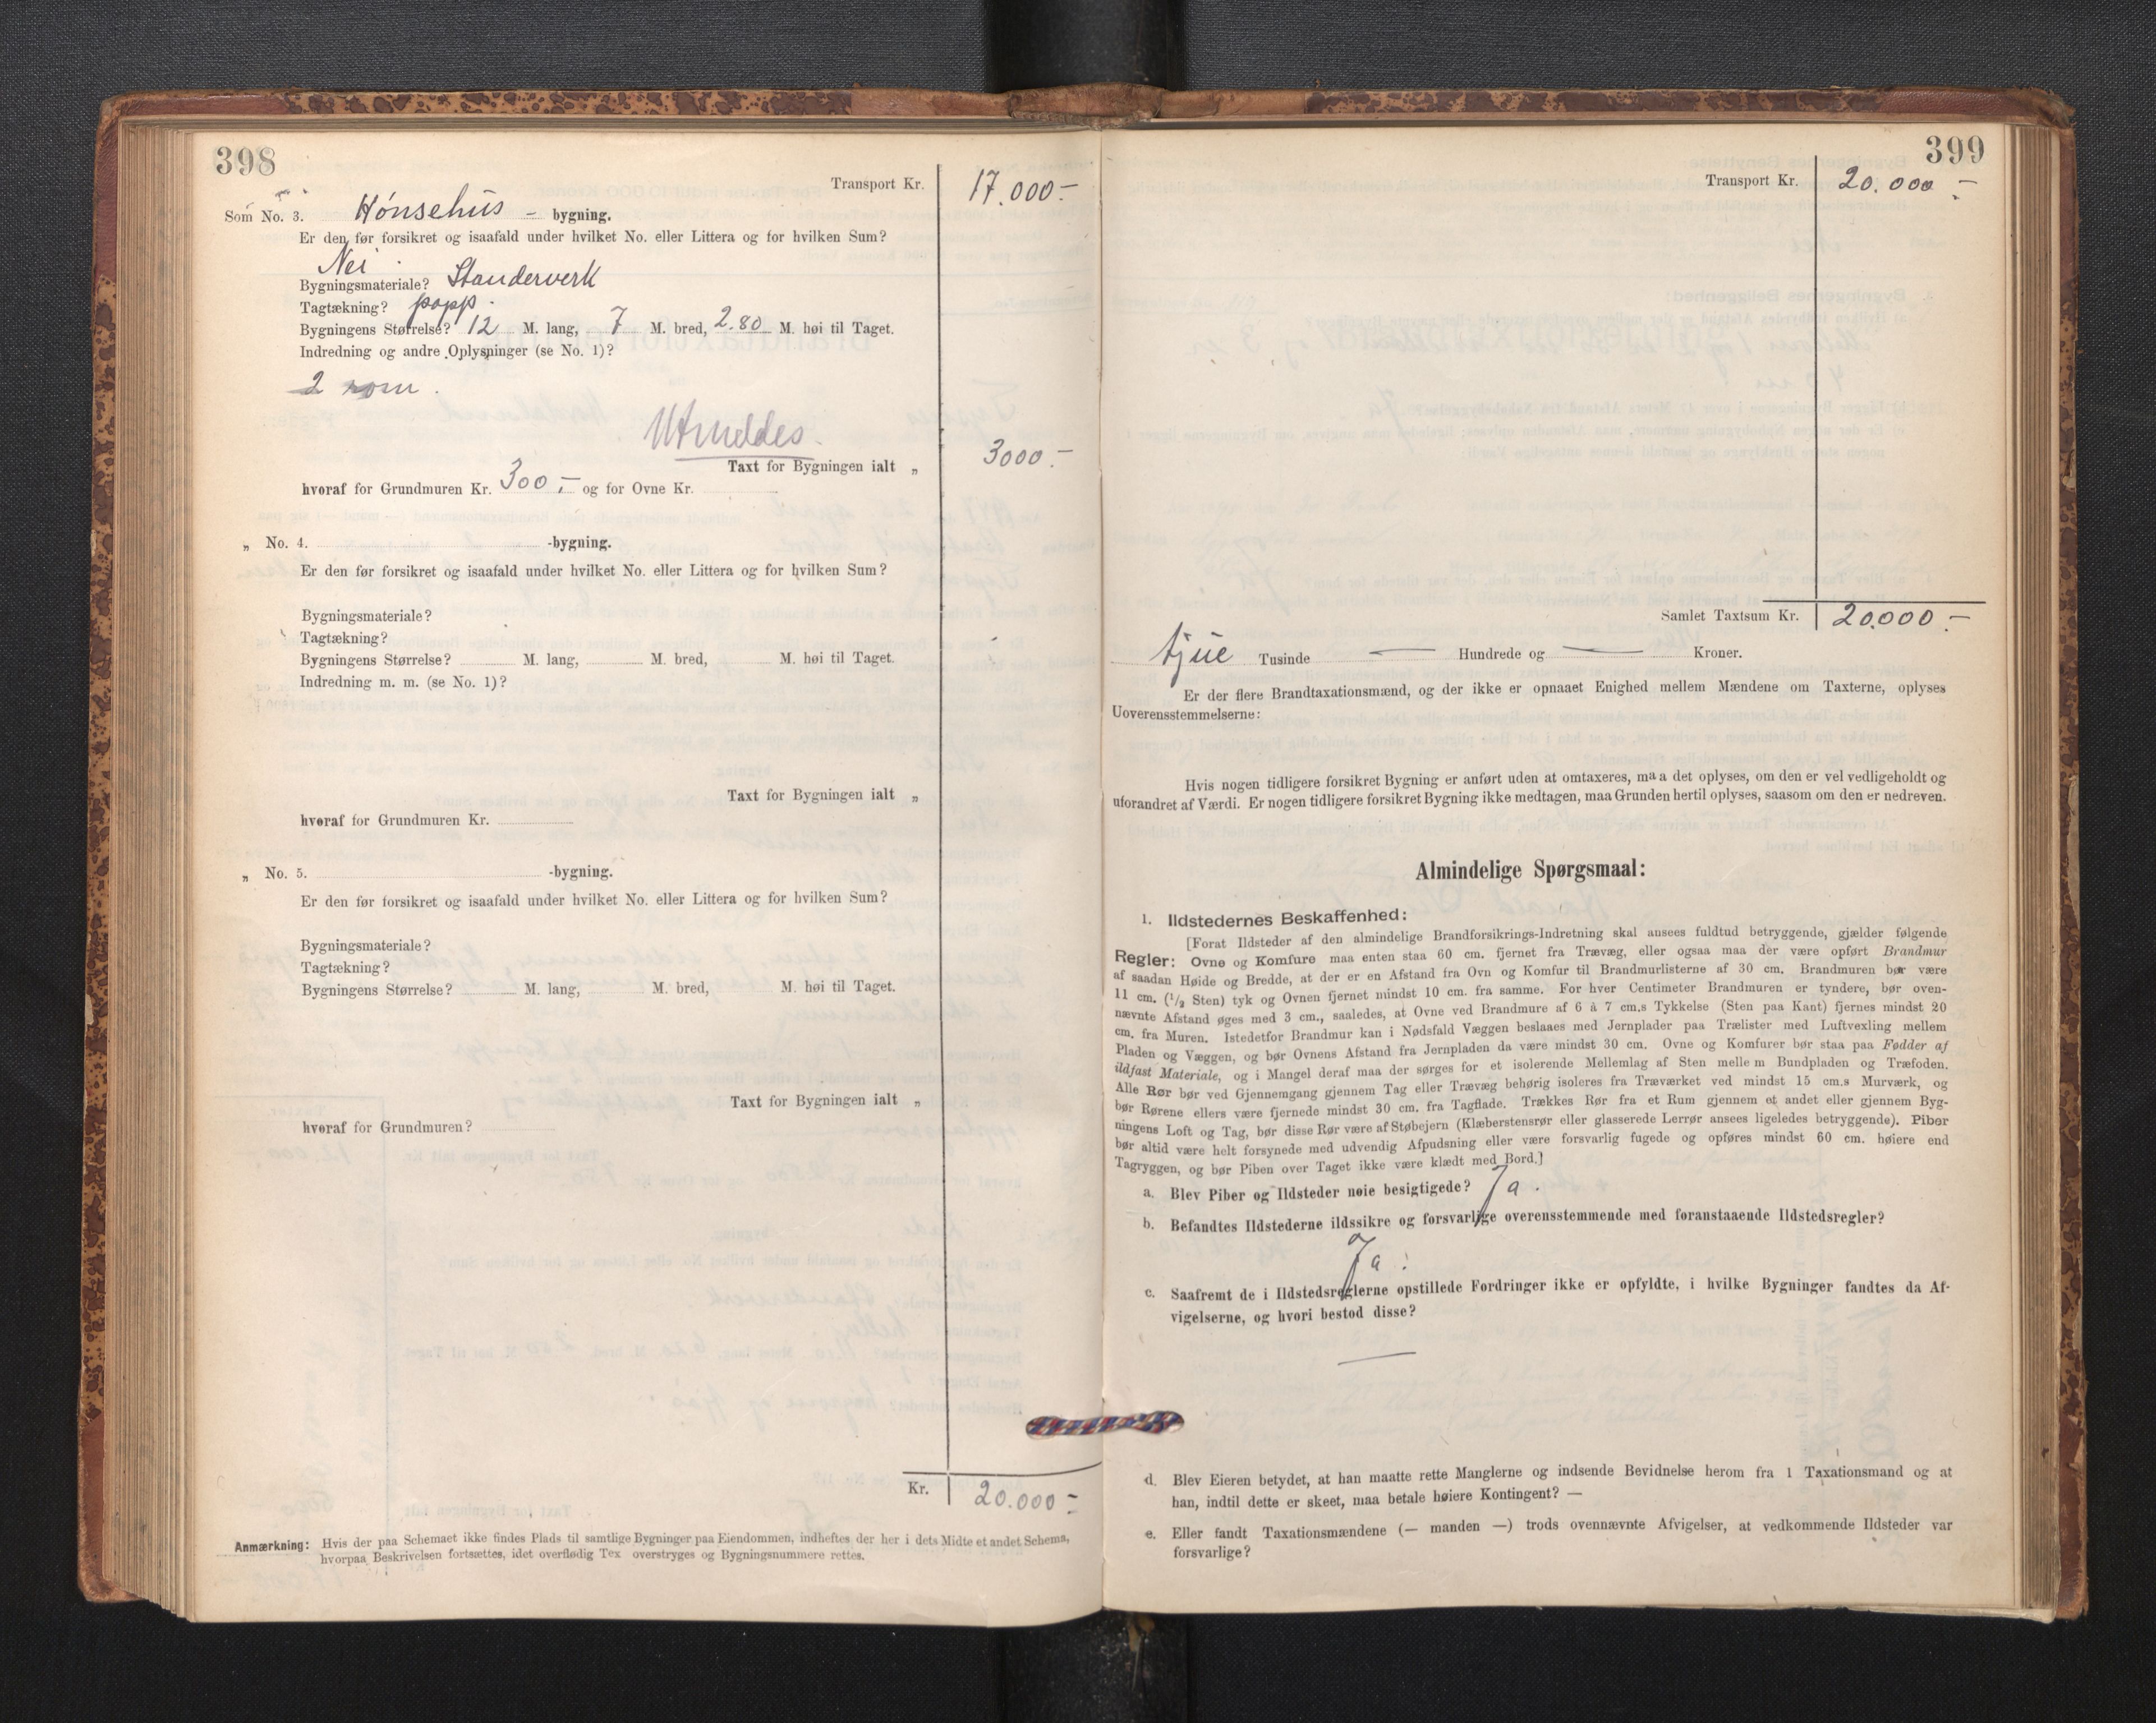 398
Transport Kr. 17.000.-
Som No. 3. Hønsehus - bygning.
Er den før forsikret og isaafald under hvilket No. eller Littera og for hvilken Sum?
Nei.
Bygningsmateriale? Standerverk
Tagtækning? papp.
Bygningens Størrelse? 12 M. lang, 7 M. bred, 2.80 M. høi til Taget.
Indredning og andre Oplysninger (se No. 1)?
2 rom.
Utmeldes.
Taxt for Bygningen ialt „ 3000.-
hvoraf for Grundmuren Kr. 300.- og for Ovne Kr.
„ No. 4. -bygning.
Er den før forsikret og isaafald under hvilket No. eller Littera og for hvilken Sum?
Bygningsmateriale?
Tagtækning?
Bygningens Størrelse? M. lang, M. bred, M. høi til Taget.
Indredning m. m. (se No. 1)?
Taxt for Bygningen ialt „
hvoraf for Grundmuren Kr.
„ No. 5. -bygning.
Er den før forsikret og isaafald under hvilket No. eller Littera og for hvilken Sum?
Bygningsmateriale?
Tagtækning?
Bygningens Størrelse? M. lang, M. bred, M. høi til Taget.
Taxt for Bygningen ialt „
hvoraf for Grundmuren?
Kr. 20.000-
Anmærkning: Hvis der paa Schemaet ikke findes Plads til samtlige Bygninger paa Eiendommen, indheftes der her i dets Midte et andet Schema,
hvorpaa Beskrivelsen fortsættes, idet overflødig Tex overstryges og Bygningsnummere rettes.
399
Transport Kr. 20.000-
Samlet Taxtsum Kr. 20.000.-
tjue Tusinde — Hundrede og — Kroner.
Er der flere Brandtaxationsmænd, og der ikke er opnaaet Enighed mellem Mændene om Taxterne, oplyses
Uoverensstemmelserne:
Hvis nogen tidligere forsikret Bygning er anført uden at omtaxeres, maa det oplyses, om den er vel vedligeholdt og
uforandret af Værdi. Er nogen tidligere forsikret Bygning ikke medtagen, maa Grunden hertil oplyses, saasom om den er nedreven.
Almindelige Spørgsmaal:
1. Ildstedernes Beskaffenhed:
[Forat Ildsteder af den almindelige Brandforsikrings-Indretning skal ansees fuldtud betryggende, gjælder følgende
Regler: Ovne og Komfure maa enten staa 60 cm. fjernet fra Trævæg, eller ogsaa maa der være opført Brandmur
af saadan Høide og Bredde, at der er en Afstand fra Ovn og Komfur til Brandmurlisterne af 30 cm. Brandmuren bør være
11 cm. (1/2 Sten) tyk og Ovnen fjernet mindst 10 cm. fra samme. For hver Centimeter Brandmuren er tyndere, bør oven-
nævnte Afstand øges med 3 cm., saaledes, at Ovne ved Brandmure af 6 à 7 cm.s Tykkelse (Sten paa Kant) fjernes mindst 20
cm. fra Muren. Istedetfor Brandmur kan i Nødsfald Væggen beslaaes med Jernplader paa Trælister med Luftvexling mellem
Pladen og Væggen, og bør Ovnens Afstand fra Jernpladen da være mindst 30 cm. Ovne og Komfurer bør staa paa Fødder af
ildfast Materiale, og i Mangel deraf maa der sørges for et isolerende Mellemlag af Sten mellem Bundpladen og Træfoden.
Alle Rør bør ved Gjennemgang gjennem Tag eller Trævæg behørig isoleres fra Træværket ved mindst 15 cm.s Murværk, og
bør Rørene ellers være fjernede mindst 30 cm. fra Tagflade. Trækkes Rør fra et Rum gjennem et andet eller gjennem Byg-
ningens Loft og Tag, bør disse Rør være af Støbejern (Klæberstensrør eller glasserede Lerrør ansees ligeledes betryggende). Piber
bør altid være helt forsynede med udvendig Afpudsning eller være forsvarlig fugede og opføres mindst 60 cm. høiere end
Tagryggen, og bør Piben over Taget ikke være klædt med Bord.]
a. Blev Piber og Ildsteder nøie besigtigede? Ja.
b. Befandtes Ildstederne ildssikre og forsvarlige overensstemmende med foranstaaende Ildstedsregler?
Ja.
c. Saafremt de i Ildstedsreglerne opstillede Fordringer ikke er opfyldte, i hvilke Bygninger fandtes da Af-
vigelserne, og hvori bestod disse?
—
d. Blev Eieren betydet, at han maatte rette Manglerne og indsende Bevidnelse herom fra 1 Taxationsmand og at
han, indtil dette er skeet, maa betale høiere Kontingent? —
e. Eller fandt Taxationsmændene (— manden —) trods ovennævnte Afvigelser, at vedkommende Ildsteder var
forsvarlige?